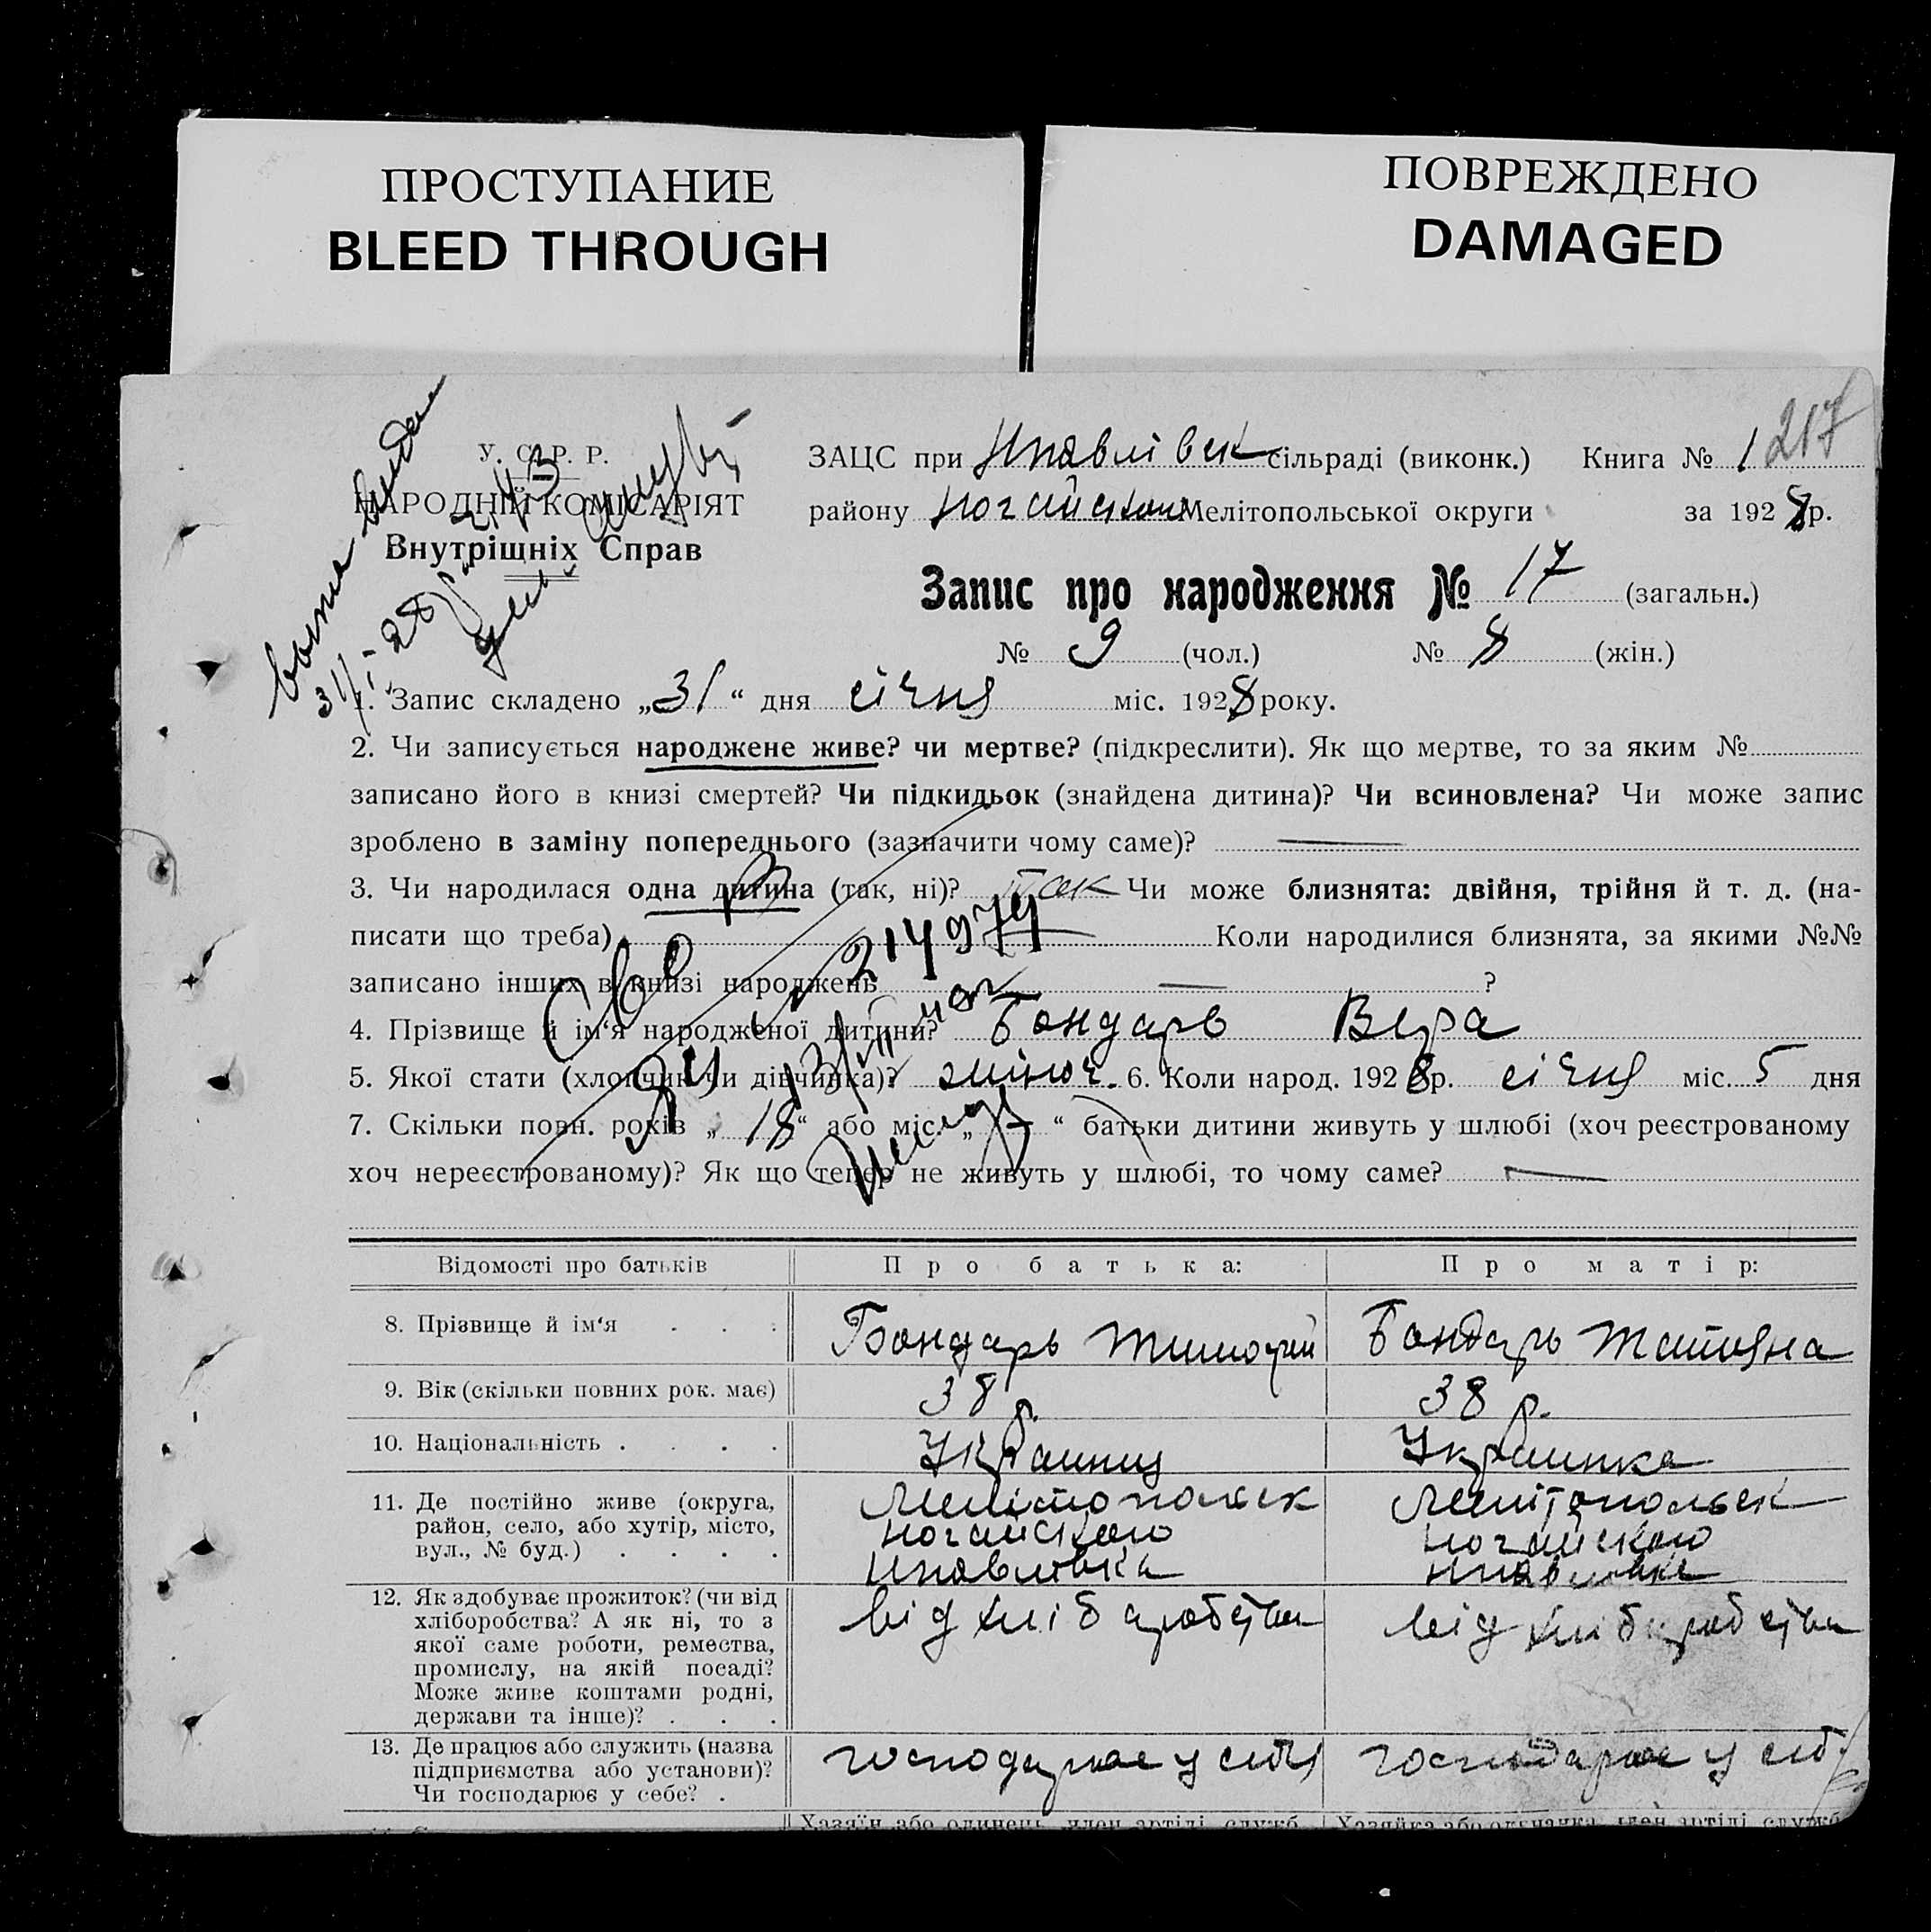 ПРОСТУПАНИЕ
BLEED THROUGH
ПОВРЕЖДЕНО
DAMAGED
217
У. С. Р. Р.
НАРОДНІЙ КОМІСАРІЯТ
Внутрішніх Справ
ЗАЦС при сільраді (виконк.) Книга № 1
району Мелітопольської округи за 1928 р.
Запис про народження № 17 (загальн.)
№ 9 (чол.) № 8 (жін.)
1. Запис складено „31“ дня січня міс. 1928 року.
2. Чи записується народжене живе? чи мертве? (підкреслити). Як що мертве, то за яким №
записано його в книзі смертей? Чи підкидьок (знайдена дитина)? Чи всиновлена? Чи може запис
зроблено в заміну попереднього (зазначити чому саме)? —
3. Чи народилася одна дитина (так, ні)? так Чи може близнята: двійня, трійня й т. д. (на-
писати що треба) Коли народилися близнята, за якими №№
записано інших в книзі народжень — ?
4. Прізвище й ім‘я народженої дитини? Бондарь Вера
5. Якої стати (хлопчик чи дівчинка)? жіноч. 6. Коли народ. 1928 р. січня міс. 5 дня
7. Скільки повн. років „18“ або міс. „ “ батьки дитини живуть у шлюбі (хоч реєстрованому
хоч нереєстрованому)? Як що тепер не живуть у шлюбі, то чому саме? —
Відомості про батьків
Про батька:
Про матір:
8. Прізвище й ім‘я . . .
Бондарь Тимофій
Бондарь Татьяна
9. Вік (скільки повних рок. має)
38 р.
38 р.
10. Національність . . . .
Українец
Українка
11. Де постійно живе (округа,
район, село, або хутір, місто,
вул., № буд.) . . . .
Мелітопольск
Ногайского
Мелітопольск
Ногайского
12. Як здобуває прожиток? (чи від
хліборобства? А як ні, то з
якої саме роботи, ремества,
промислу, на якій посаді?
Може живе коштами родні,
держави та інше)? . . .
від хліборобства
від хліборобства
13. Де працює або служить (назва
підприємства або установи)?
Чи господарює у себе? .
господарює у себе
господарює у себе
Хазяїн або одинець, член артілі, служб.
Хазяйка або одиначка, член артілі, службб